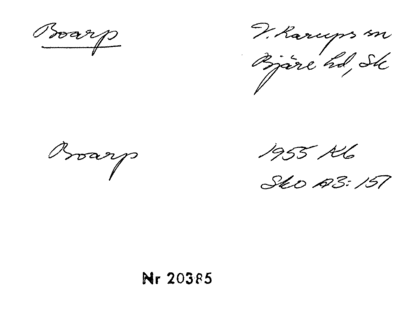 Boarp
V. Karups sn
Bjäre hd, Sk
Boarp
1955 Kb
Sko A3:151
Nr 20385